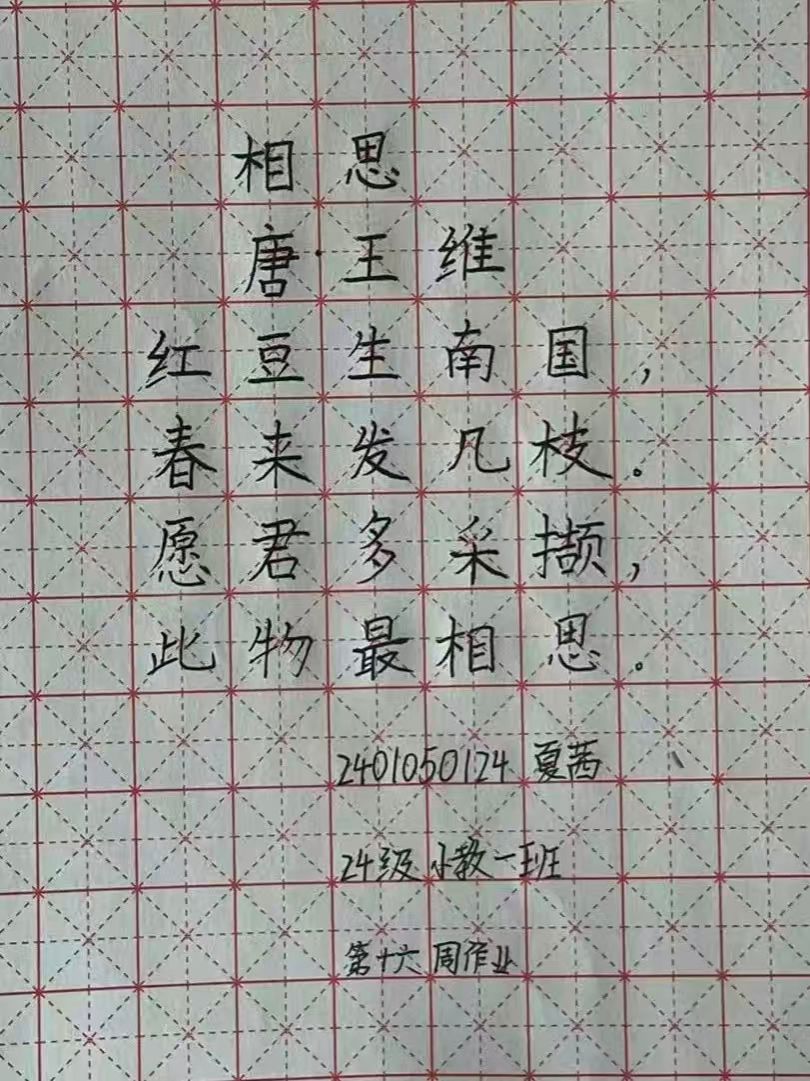 相思
唐·王维
红豆生南国，
春来发凡枝。
愿君多采撷，
此物最相思。
2401050124 夏茜
24级小教一班
第十六周作业